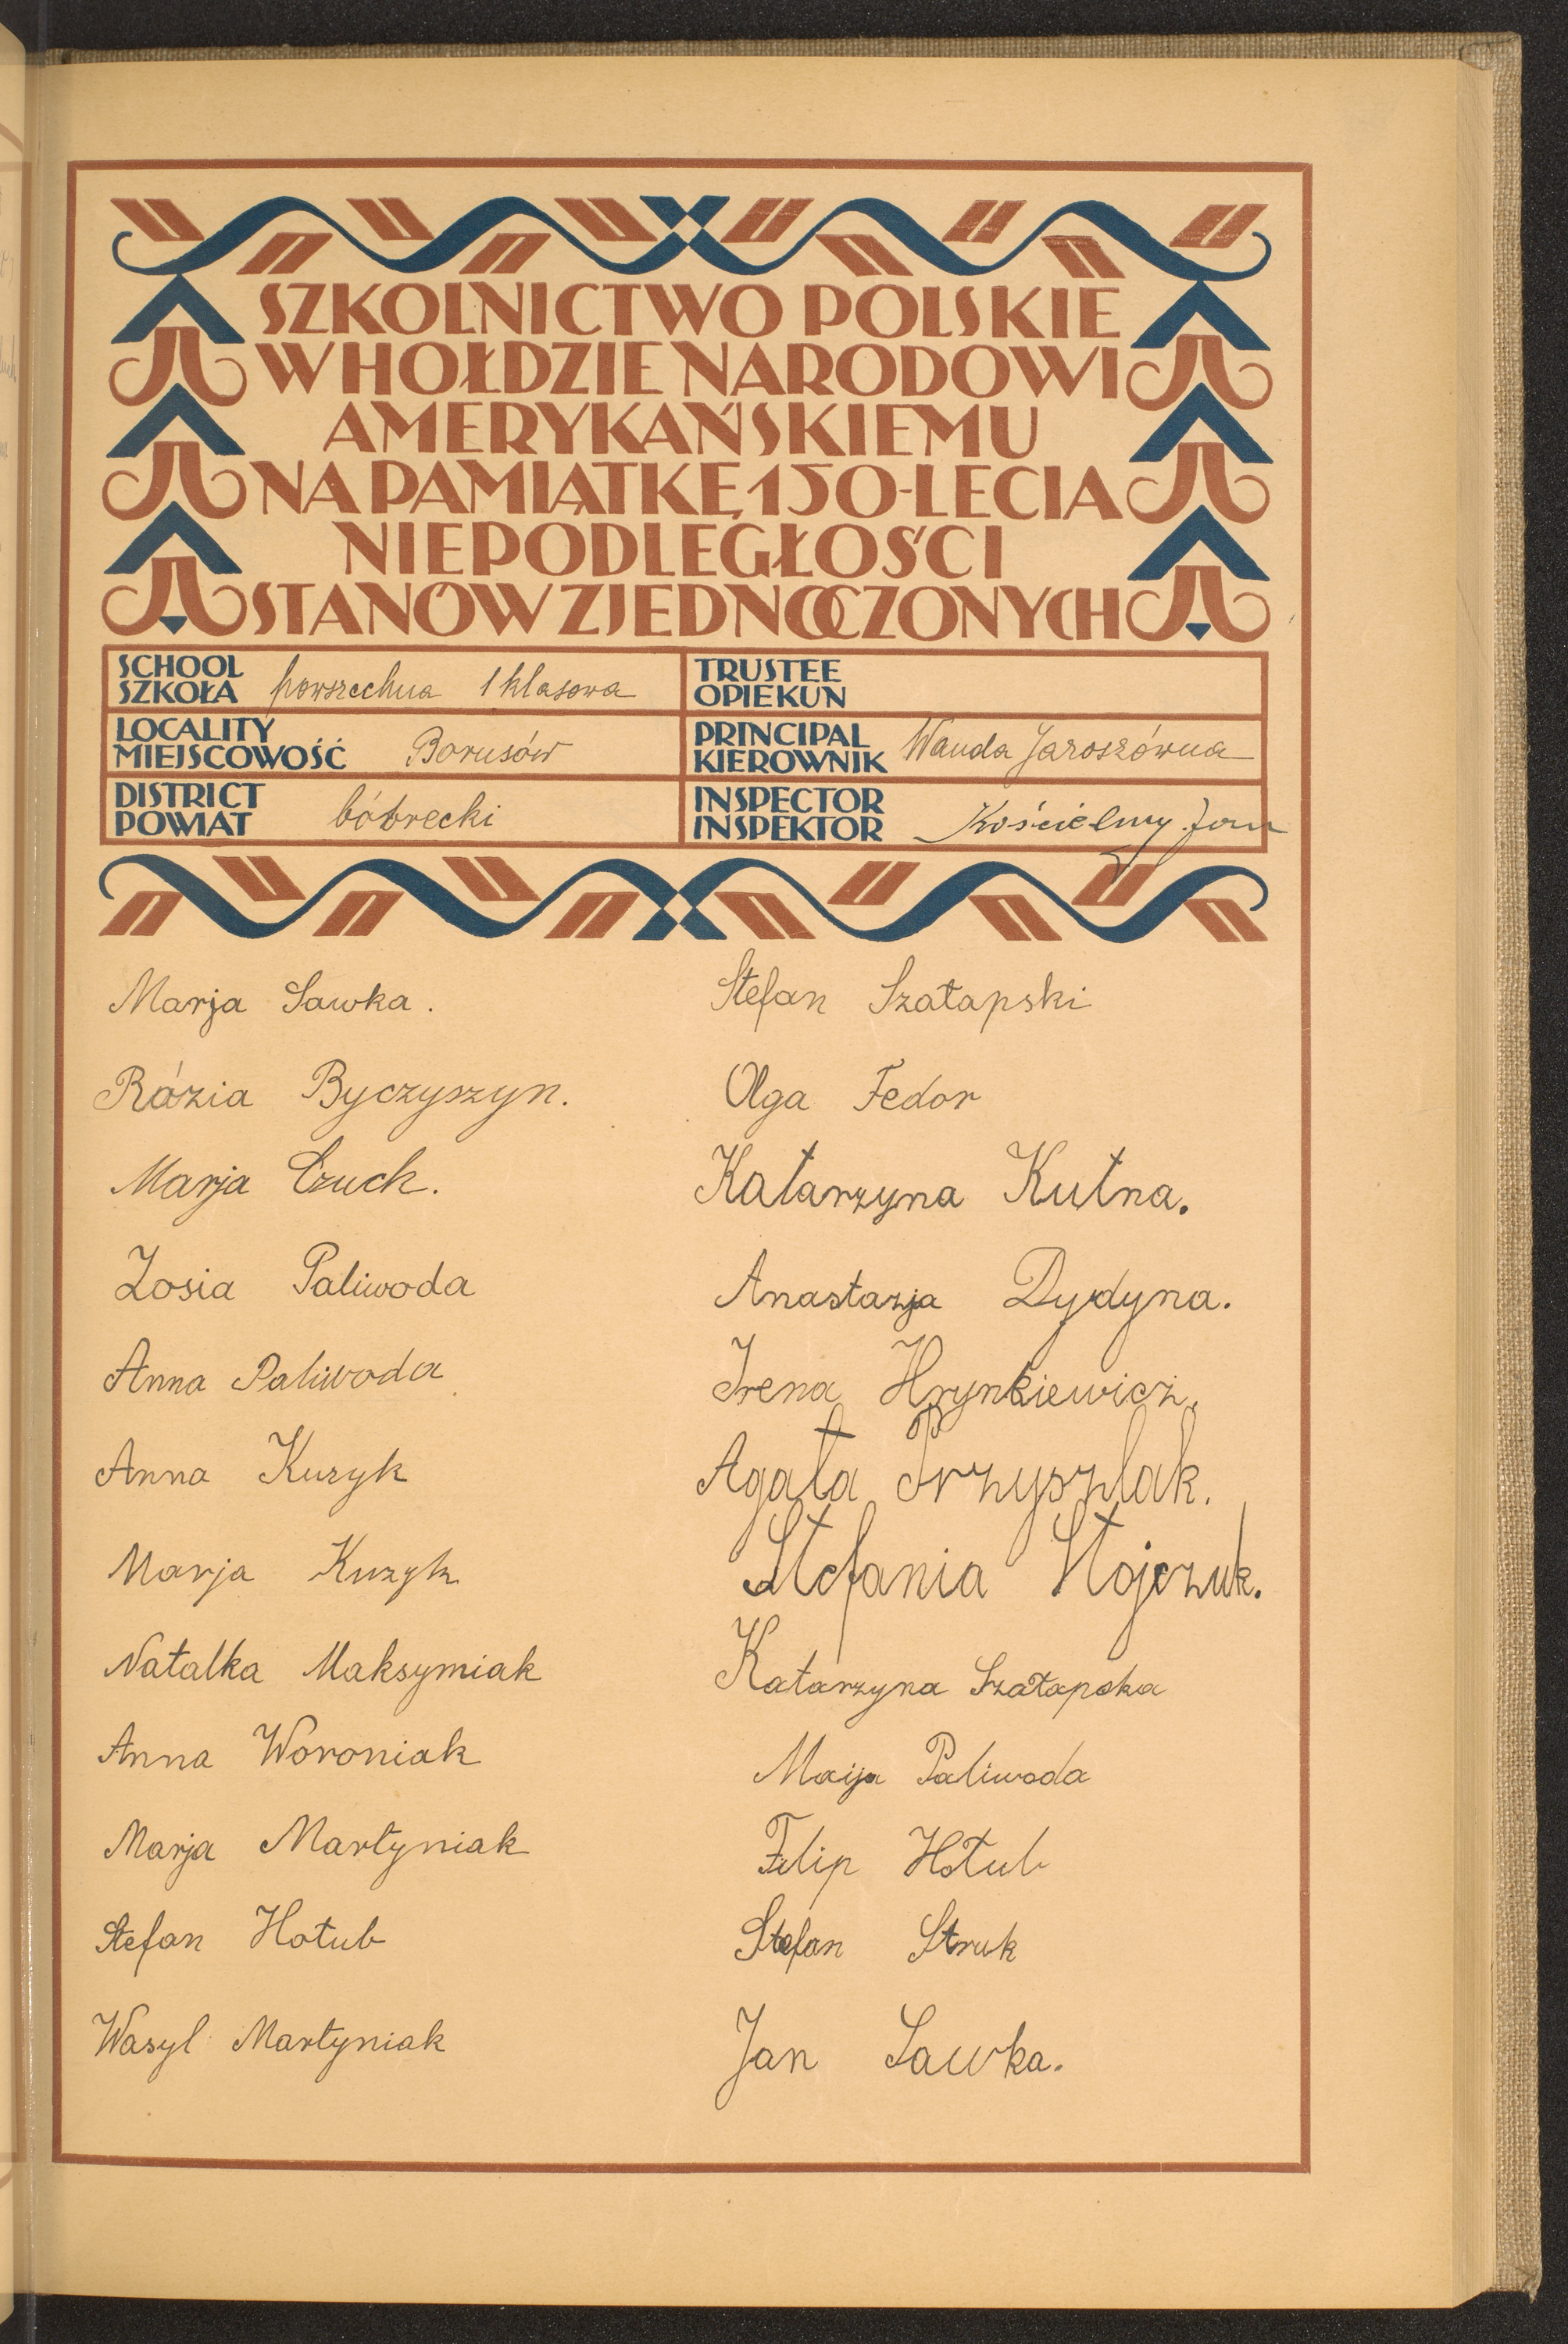 SZKOLNICTWO POLSKIE
W HOŁDZIE NARODOWI
AMERYKAŃSKIEMU
NA PAMIĄTKĘ 150-LECIA
NIEPODLEGŁOŚCI
STANÓW ZJEDNOCZONYCH
SCHOOL
SZKOŁA powszechna 1 klasowa
TRUSTEE
OPIEKUN
LOCALITY
MIEJSCOWOŚĆ Borusów
PRINCIPAL
KIEROWNIK Wanda Jaroszówna
DISTRICT
POWIAT bóbrecki
INSPECTOR
INSPEKTOR Kościelny Jan
Marja Sawka.
Rózia Byczyszyn.
Marja Czuch.
Zosia Paliwoda
Anna Paliwoda
Anna Kuzyk
Marja Kuzyk
Natalka Maksymiak
Anna Woroniak
Marja Martyniak
Stefan Hołub
Wasyl Martyniak
Stefan Szałapski
Olga Fedor
Katarzyna Kutna.
Anastazja Dydyna.
Irena Hrynkiewicz.
Agata Przyszlak.
Stefania Stojczuk.
Katarzyna Szałapska
Marja Paliwoda
Filip Hołub
Stefan Struk
Jan Sawka.